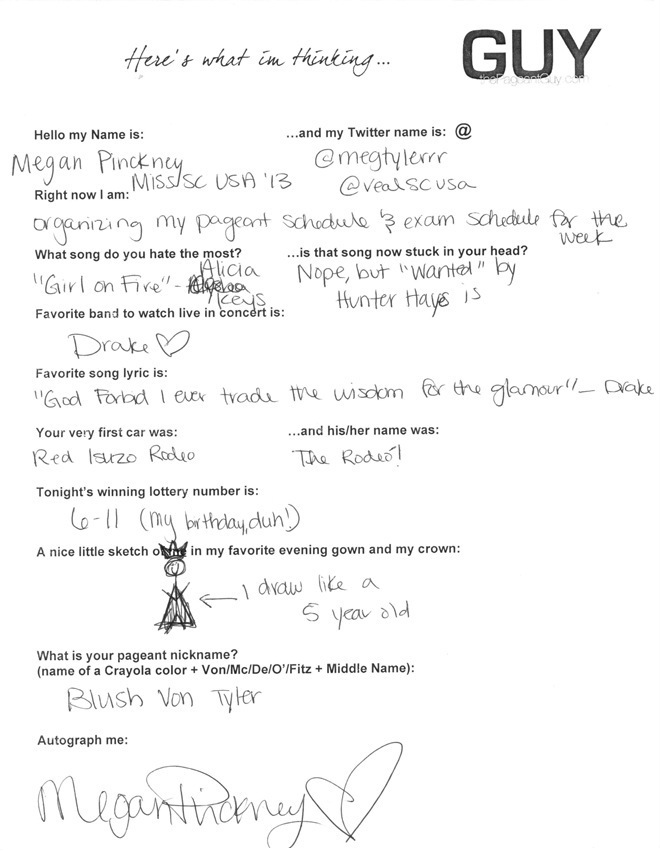 Here's what im thinking...
GUY
thePageantGuy.com
Hello my Name is:
...and my Twitter name is: @
Megan Pinckney
Miss SC USA '13
@megtylerrr
@realscusa
Right now I am:
organizing my pageant schedule & exam schedule for the
week
What song do you hate the most?
...is that song now stuck in your head?
"Girl on Fire" - Alicia
Keys
Nope, but "Wanted" by
Hunter Hayes is
Favorite band to watch live in concert is:
Drake ♡
Favorite song lyric is:
"God Forbid I ever trade the wisdom for the glamour" - Drake
Your very first car was:
...and his/her name was:
Red Isuzo Rodeo
The Rodeo!
Tonight's winning lottery number is:
6-11 (my birthday, duh!)
A nice little sketch of me in my favorite evening gown and my crown:
I draw like a
5 year old
What is your pageant nickname?
(name of a Crayola color + Von/Mc/De/O'/Fitz + Middle Name):
Blush Von Tyler
Autograph me:
Megan Pinckney ♡